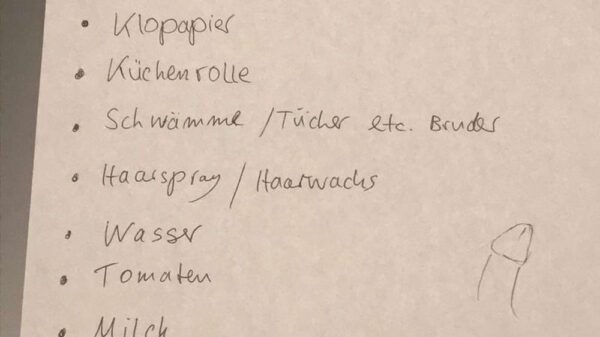 • Klopapier
• Küchenrolle
• Schwämme / Tücher etc. Bruder
• Haarspray / Haarwachs
• Wasser
• Tomaten
• Milch